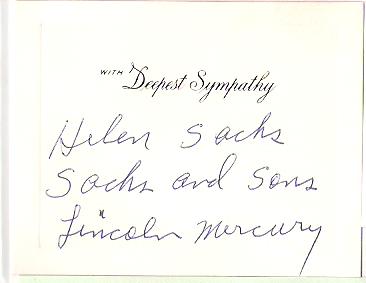 WITH Deepest Sympathy
Helen Sacks
Sacks and Sons
Lincoln Mercury